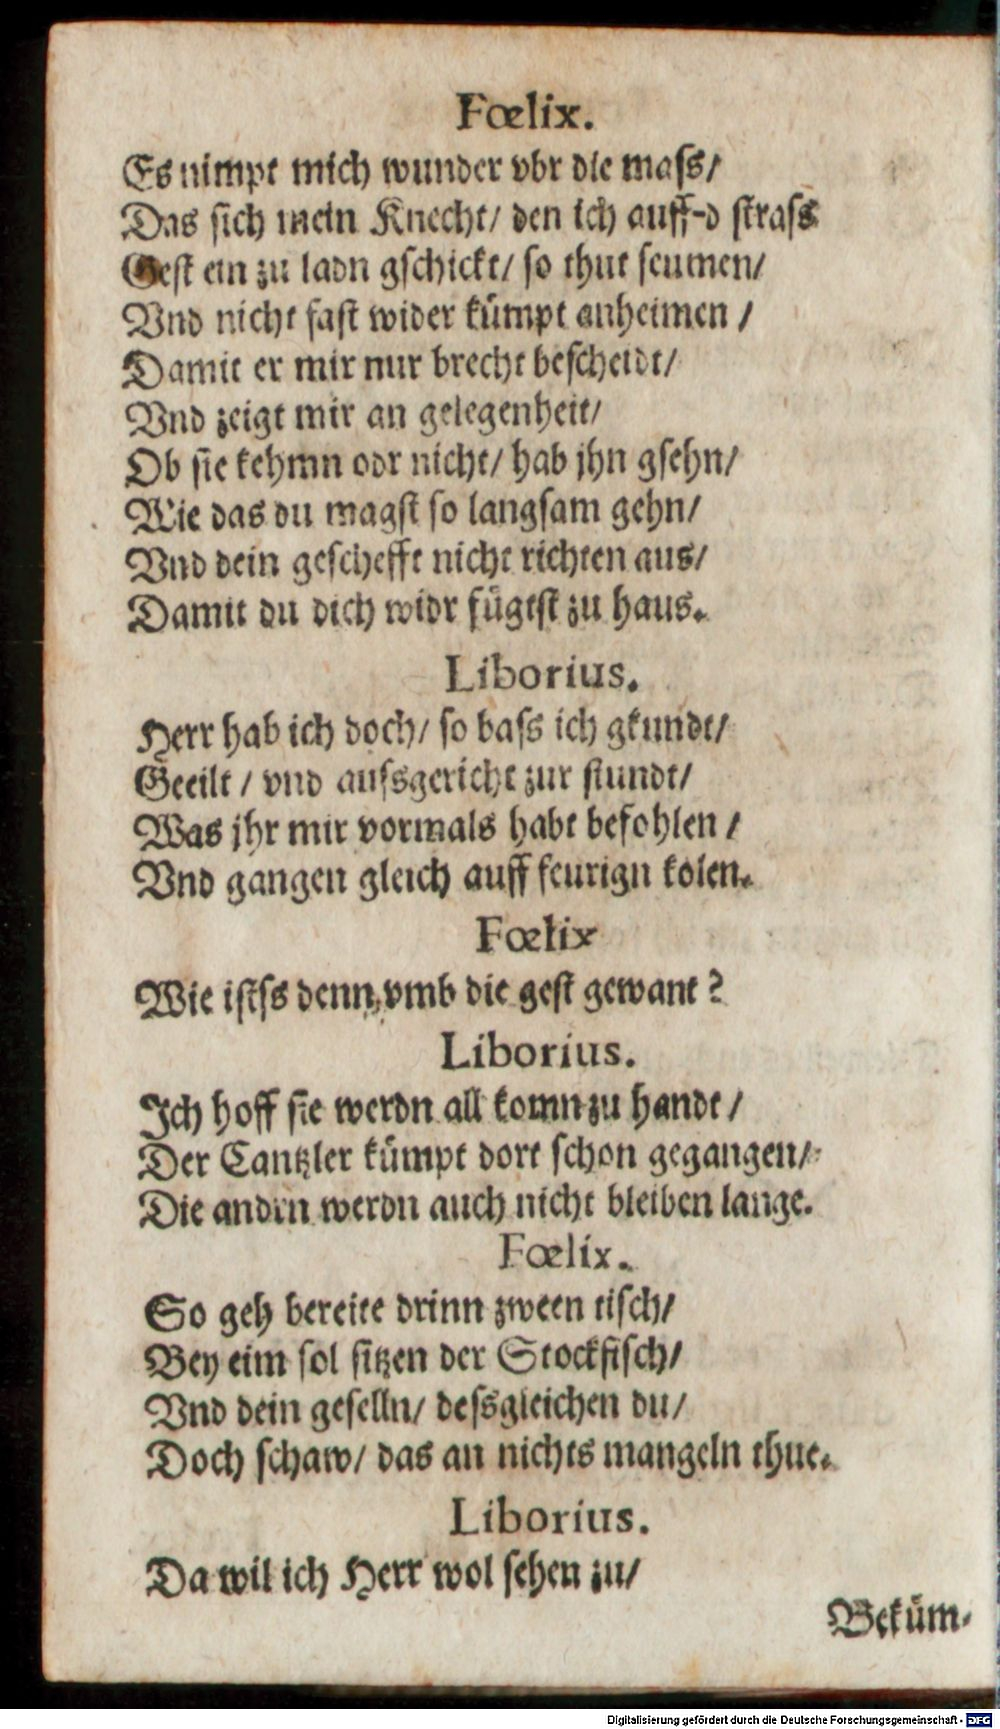 Fœlix.
Es nimpt mich wunder vbr die maſs/
Das ſich mein Knecht/ den ich auff-d ſtraſs
Geſt ein zu ladn gſchickt/ ſo thut ſeumen/
Vnd nicht faſt wider kuͤmpt anheimen /
Damit er mir nur brecht beſcheidt/
Vnd zeigt mir an gelegenheit/
Ob ſie kehmn odr nicht/ hab jhn gſehn/
Wie das du magſt ſo langſam gehn/
Vnd dein geſchefft nicht richten aus/
Damit du dich widr fuͤgtſt zu haus.
Liborius.
Herr hab ich doch/ ſo baſs ich gkundt/
Geeilt / vnd auſsgericht zur ſtundt/
Was jhr mir vormals habt befohlen /
Vnd gangen gleich auff feurign kolen.
Fœlix
Wie iſtſs denn vmb die geſt gewant ?
Liborius.
Ich hoff ſie werdn all komn zu handt /
Der Cantzler kuͤmpt dort ſchon gegangen/
Die andrn werdn auch nicht bleiben lange.
Fœlix.
So geh bereite drinn zween tiſch/
Bey eim ſol ſitzen der Stockfiſch/
Vnd dein geſelln/ deſsgleichen du/
Doch ſchaw/ das an nichts mangeln thue.
Liborius.
Da wil ich Herr wol ſehen zu/
Bekuͤm-
Digitalisierung gefördert durch die Deutsche Forschungsgemeinschaft - DFG